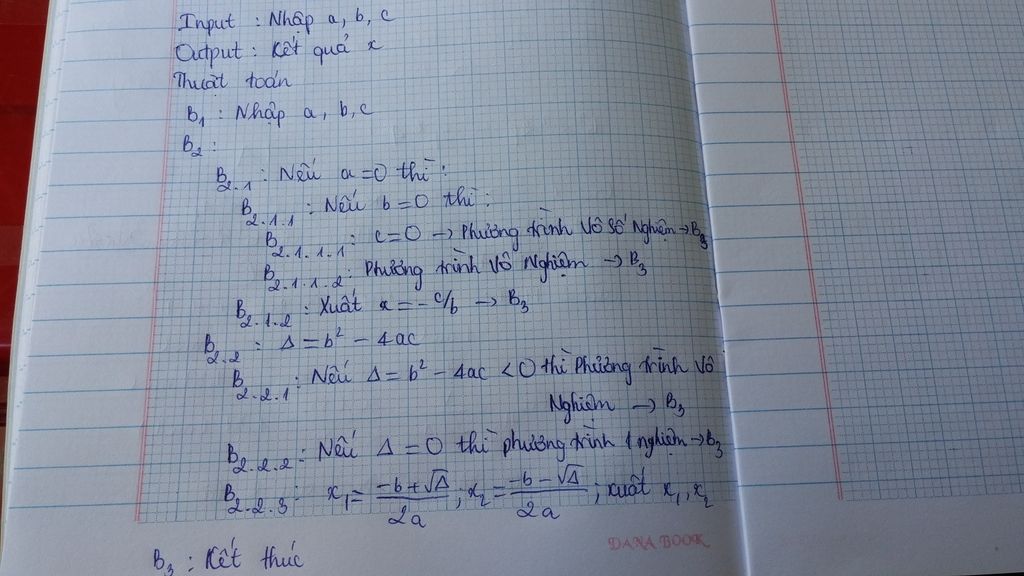 Input : Nhập a, b, c
Output : Kết quả x
Thuật toán
B1 : Nhập a, b, c
B2 :
B2.1 : Nếu a = 0 thì :
B2.1.1 : Nếu b = 0 thì :
B2.1.1.1 : c = 0 → Phương trình Vô số Nghiệm → B3
B2.1.1.2 : Phương trình Vô Nghiệm → B3
B2.1.2 : Xuất x = -c/b → B3
B2.2 : Δ = b² - 4ac
B2.2.1 : Nếu Δ = b² - 4ac < 0 thì Phương trình Vô
Nghiệm → B3
B2.2.2 : Nếu Δ = 0 thì phương trình 1 nghiệm → B3
B2.2.3 : x1 = (-b + √Δ)/2a ; x2 = (-b - √Δ)/2a ; xuất x1, x2
B3 : Kết thúc
DANA BOOK